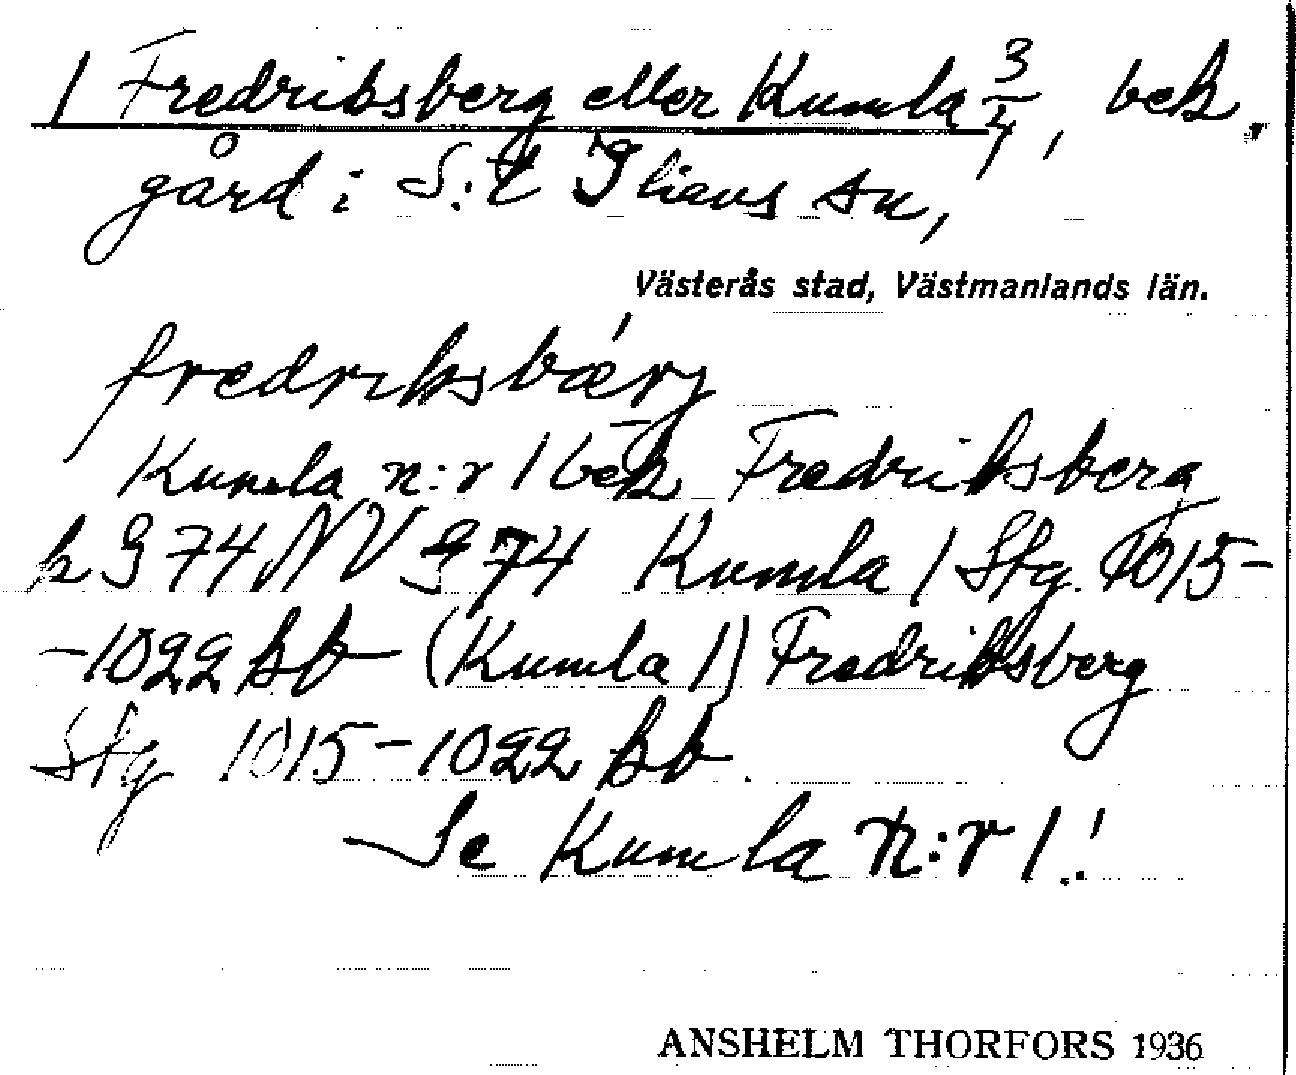 1 Fredriksberg eller Kumla 3/4, bek.
gård i S:t Ilians sn,
Västerås stad, Västmanlands län.
fredriksbærj
Kumla n:r 1 bek Fredriksberg
k G 74 NV G 74 Kumla 1 Stg. 1015-
-1022 bb (Kumla 1) Fredriksberg
Stg 1015-1022 bb.
Se Kumla n:r 1!
ANSHELM THORFORS 1936